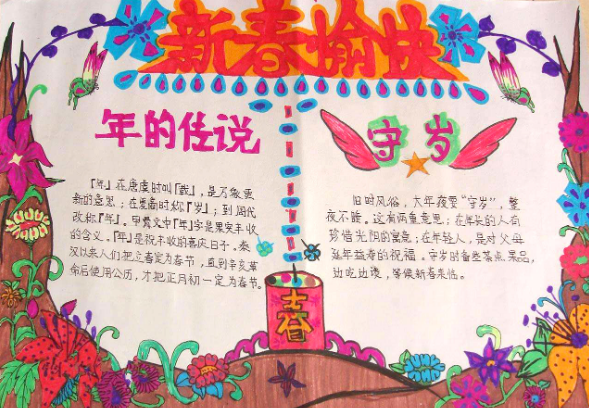 新春愉快
年的传说
「年」在唐虞时叫「载」，是万象更
新的意思；在夏商时称「岁」；到周代
改称「年」。甲骨文中「年」字是果实丰收
的含义。「年」是祝丰收的喜庆日子。秦
汉以来人们把立春定为春节，直到辛亥革
命后使用公历，才把正月初一定为春节。
守岁
旧时风俗，大年夜要“守岁”，整
夜不睡。这有两重意思：在年长的人有
珍惜光阴的寓意；在年轻人，是对父母
延年益寿的祝福。守岁时备些茶点、果品，
边吃边谈，等候新春来临。
春